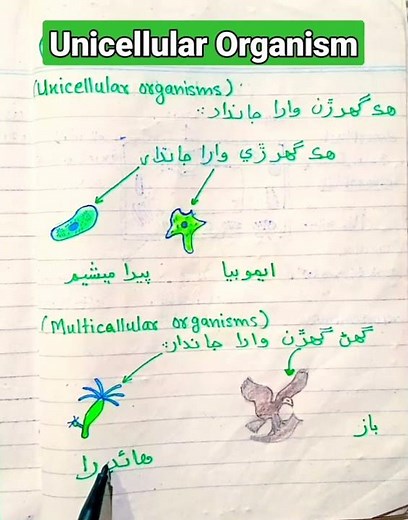 Unicellular Organism
(Unicellular organisms)
هڪ گھرڙن وارا جاندار:
هڪ گھرڙي وارا جاندار
پيرا ميشيم
ايموبيا
(Multicallular organisms)
گھڻ گھرڙن وارا جاندار:
باز
هائيڊرا